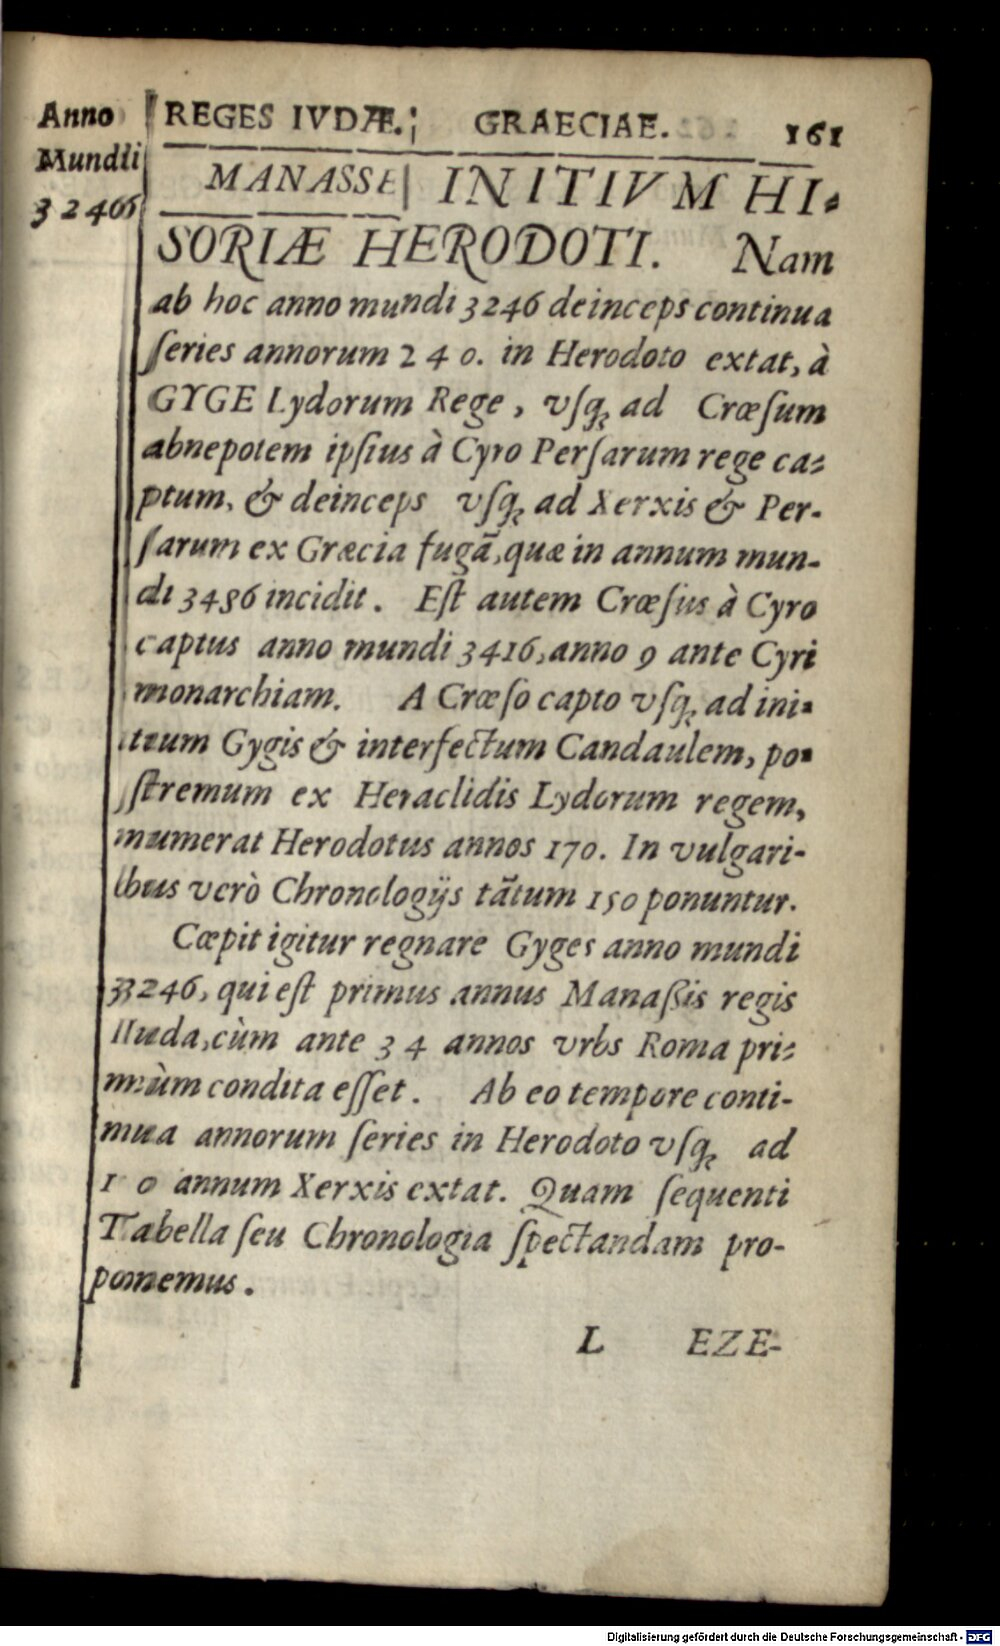 Anno
Mundi
3246
REGES IVDÆ. GRAECIAE. 161
MANASSE INITIVM HI-
SORIÆ HERODOTI. Nam
ab hoc anno mundi 3246 deinceps continua
ſeries annorum 240. in Herodoto extat, à
GYGE Lydorum Rege, vſq; ad Crœſum
abnepotem ipſius à Cyro Perſarum rege ca-
ptum, & deinceps vſq; ad Xerxis & Per-
ſarum ex Græcia fugā, quæ in annum mun-
di 3486 incidit. Eſt autem Crœſus à Cyro
captus anno mundi 3416, anno 9 ante Cyri
monarchiam. A Crœſo capto vſq; ad ini-
tium Gygis & interfectum Candaulem, po-
ſtremum ex Heraclidis Lydorum regem,
numerat Herodotus annos 170. In vulgari-
bus verò Chronologijs tātum 150 ponuntur.
Cœpit igitur regnare Gyges anno mundi
3246, qui eſt primus annus Manaßis regis
Iuda, cùm ante 34 annos vrbs Roma pri-
mùm condita eſſet. Ab eo tempore conti-
nua annorum ſeries in Herodoto vſq; ad
10 annum Xerxis extat. Quam ſequenti
Tabella ſeu Chronologia ſpectandam pro-
ponemus.
L EZE-
Digitalisierung gefördert durch die Deutsche Forschungsgemeinschaft - DFG